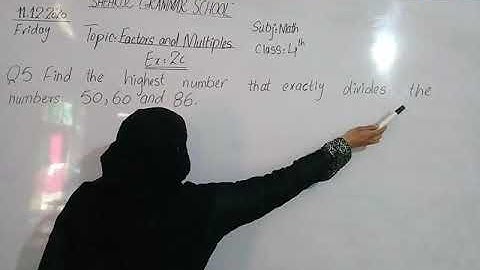 GRAMMAR SCHOOL
11.12.2020
Friday
Subj: Math
Topic: Factors and Multiples
Class: 4th
Ex: 2c
Q5 Find the highest number that exactly divides the
numbers 50, 60 and 86.